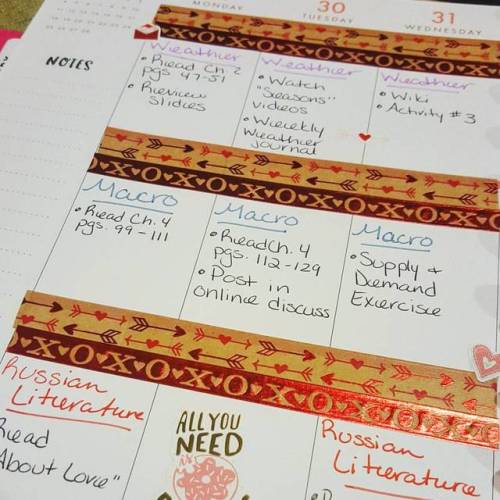 MONDAY
30
TUESDAY
31
WEDNESDAY
XOXOXOXOXOXO
NOTES
Weather
• Read Ch. 2
pgs. 47-51
• Review
Slides
Weather
• Watch
"Seasons"
videos
• Weekly
Weather
Journal
Weather
• Wiki
• Activity #3
XOXOXOXOXOXO
Macro
• Read Ch. 4
pgs. 99-111
Macro
• Read Ch. 4
pgs. 112-129
• Post in
online discuss
Macro
• Supply +
Demand
Exercise
XOXOXOXOXOXO
Russian
Literature
Read
About Love"
ALL YOU
NEED
Russian
Literature